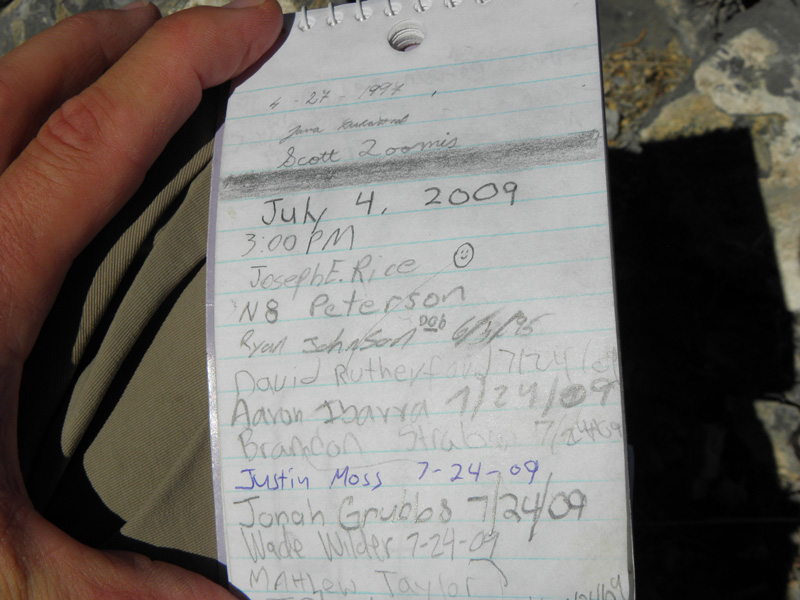 4-27-1997
Scott Zoomis
July 4, 2009
3:00 PM
Joseph E. Rice
N8 Peterson
Ryan Johnson DOB 6/3/95
David Rutherford 7/24/09
Aaron Ibarra 7/24/09
Brandon 7/24/09
Justin Moss 7-24-09
Jonah Grubbs 7/24/09
Wade Wilder 7-24-09
MAthew Taylor